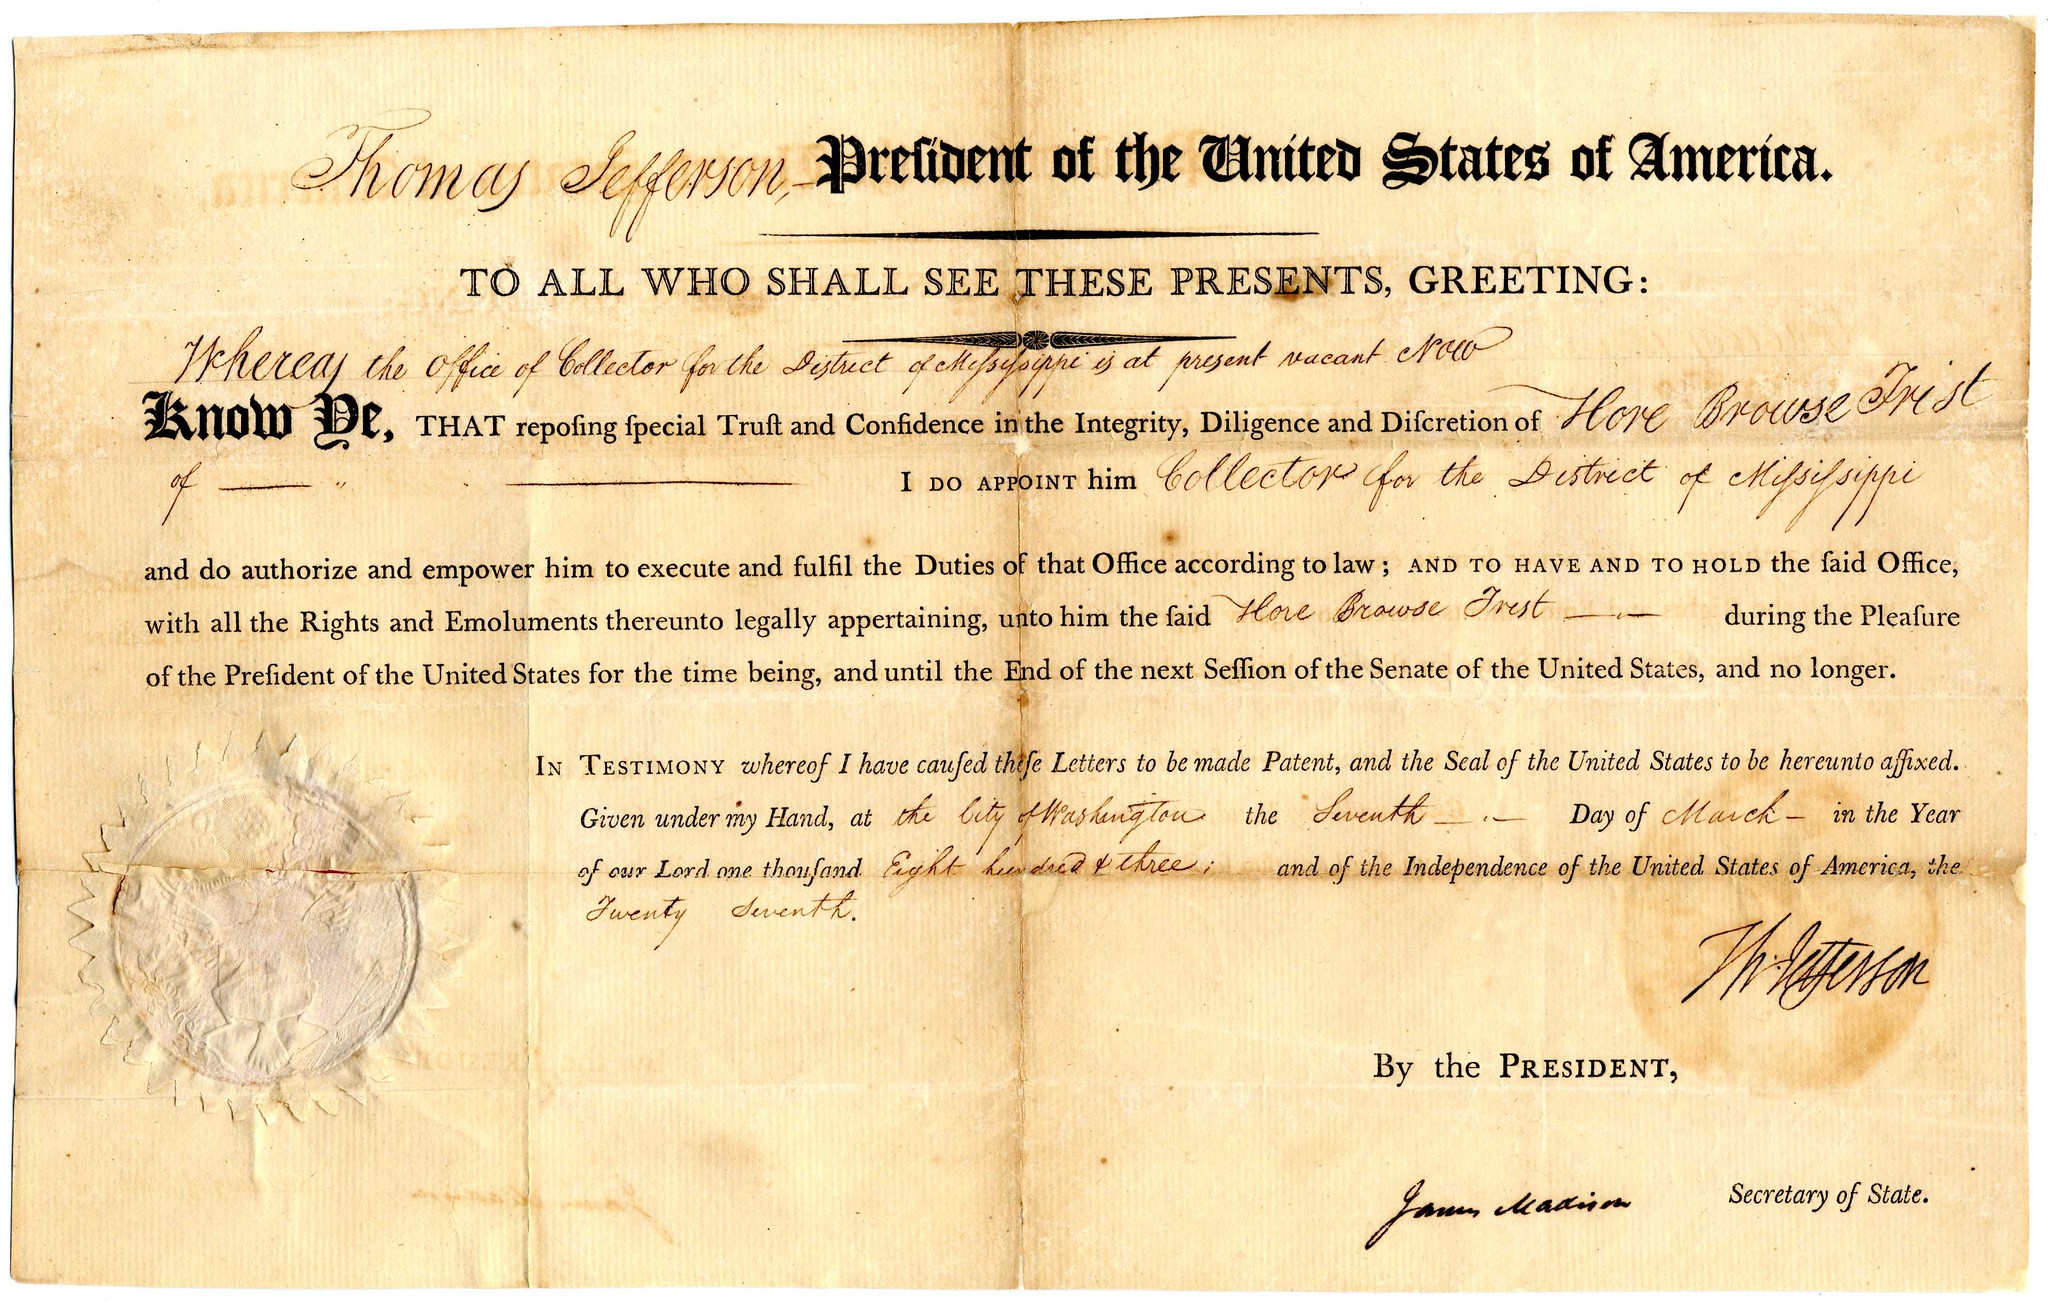 Thomas Jefferson, President of the United States of America.
TO ALL WHO SHALL SEE THESE PRESENTS, GREETING:
Whereas the Office of Collector for the District of Miſsiſsippi is at present vacant Now
Know Ye, THAT repoſing ſpecial Truſt and Confidence in the Integrity, Diligence and Diſcretion of Hore Browse Trist
of — " — I DO APPOINT him Collector for the District of Miſsiſsippi
and do authorize and empower him to execute and fulfil the Duties of that Office according to law; AND TO HAVE AND TO HOLD the ſaid Office,
with all the Rights and Emoluments thereunto legally appertaining, unto him the ſaid Hore Browse Trist — during the Pleaſure
of the Preſident of the United States for the time being, and until the End of the next Seſſion of the Senate of the United States, and no longer.
IN TESTIMONY whereof I have cauſed theſe Letters to be made Patent, and the Seal of the United States to be hereunto affixed.
Given under my Hand, at the City of Washington the Seventh — Day of March — in the Year
of our Lord one thouſand Eight hundred & three; and of the Independence of the United States of America, the
Twenty Seventh.
Th: Jefferson
By the PRESIDENT,
James Madison Secretary of State.